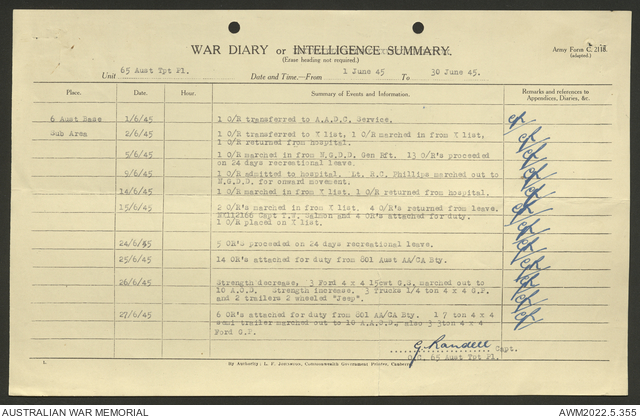 WAR DIARY or INTELLIGENCE SUMMARY.
(Erase heading not required.)
Army Form C. 2118.
(adapted.)
Unit 65 Aust Tpt Pl. Date and Time.—From 1 June 45 To 30 June 45.
Place. Date. Hour. Summary of Events and Information. Remarks and references to
Appendices, Diaries, &c.
6 Aust Base 1/6/45 1 O/R transferred to A.A.D.C. Service.
Sub Area 2/6/45 1 O/R transferred to X list, 1 O/R marched in from X list,
1 O/R returned from hospital.
5/6/45 1 O/R marched in from N.G.D.D. Gen Rft. 13 O/R's proceeded
on 24 days recreational leave.
9/6/45 1 O/R admitted to hospital. Lt. B.C. Phillips marched out to
N.G.D.D. for onward movement.
14/6/45 1 O/R marched in from X list. 1 O/R returned from hospital.
15/6/45 2 O/R's marched in from X list. 4 O/R's returned from leave.
Capt T.W. Salmon and 4 OR's attached for duty.
1 O/R placed on X list.
24/6/45 5 OR's proceeded on 24 days recreational leave.
25/6/45 14 OR's attached for duty from 801 Aust AA/CA Bty.
26/6/45 Strength decrease, 3 Ford 4 x 4 15cwt G.S. marched out to
10 A.O.D. Strength increase. 3 Trucks 1/4 ton 4 x 4 G.P.
and 2 trailers 2 wheeled "Jeep".
27/6/45 6 OR's attached for duty from 801 AA/CA Bty. 1 7 ton 4 x 4
semi trailer marched out to 10 also 3 3ton 4 x 4
Ford G.P.
G Randell Capt.
O.C. 65 Aust Tpt Pl.
By Authority: L. F. Johnston, Commonwealth Government Printer, Canberra
AUSTRALIAN WAR MEMORIAL AWM2022.5.355